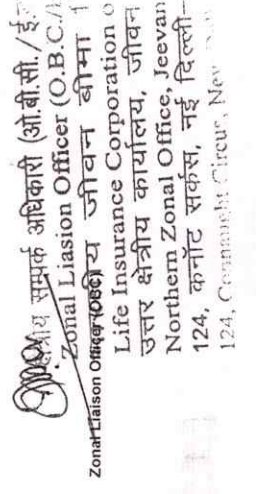 क्षेत्रीय सम्पर्क अधिकारी (ओ.बी.सी./ई.
Zonal Liasion Officer (O.B.C./
जीवन बीमा
Zonal Liaison Officer (OBC)
Life Insurance Corporation o
उत्तर क्षेत्रीय कार्यालय, जीवन
Northern Zonal Office, Jeevan
124, कनॉट सर्कस, नई दिल्ली-
124, Connaught Circus, New